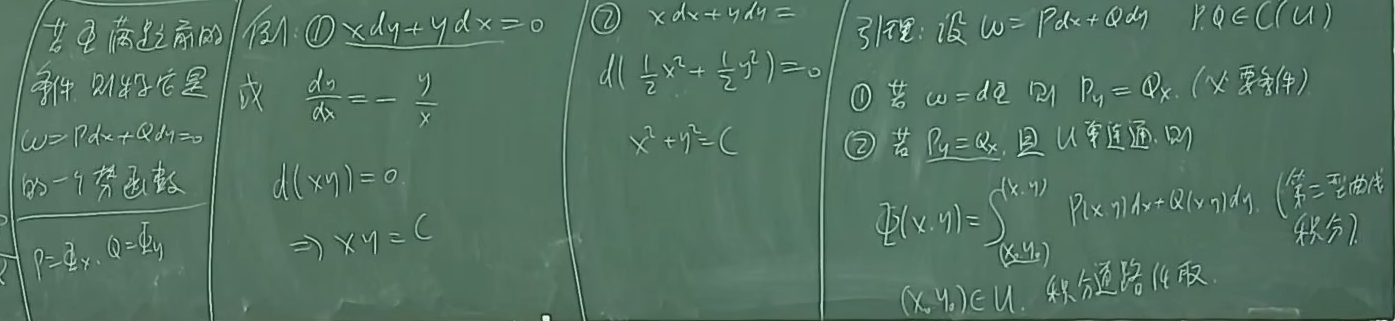 若Φ满足前的
条件 则称它是
ω=Pdx+Qdy=0
的一个势函数
P=Φx, Q=Φy
例: ① xdy+ydx=0
或 dy/dx = - y/x
d(xy)=0
⇒ xy=C
② xdx+ydy=
d(1/2 x²+1/2 y²)=0
x²+y²=C
引理: 设 ω=Pdx+Qdy P,Q∈C(U)
① 若 ω=dΦ 则 Py=Qx. (必要条件)
② 若 Py=Qx, 且 U 单连通, 则
Φ(x,y)=∫_(x₀,y₀)^(x,y) P(x,y)dx+Q(x,y)dy. (第二型曲线
积分).
(x₀,y₀)∈U. 积分道路任取.